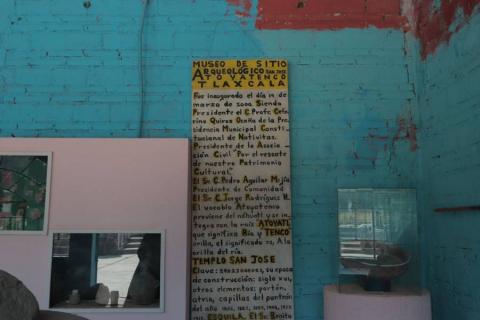 MUSEO DE SITIO
ARQUEOLÓGICO SAN JOSE
ATOYATENCO
TLAXCALA
Fue inaugurado el día 19 de
marzo de 2000 Siendo
Presidente el C. Profr. Cefe
rino Quiroz de la Pre
sidencia Municipal Consti
tucional de Nativitas.
Presidente de la Asocia
ción Civil "Por el rescate
de nuestro Patrimonio
Cultural"
El Sr. C. Pedro Aguilar Mejía
Presidente de Comunidad
El Sr. C. Jorge Rodríguez H.
El vocablo Atoyatenco
proviene del náhuatl y se in
tegra con la raíz ATOYATL
que significa Río y TENCO
orilla, el significado es, A la
orilla del río.
TEMPLO SAN JOSE
Clave: su época
de construcción: siglo XVI,
otros elementos: portón,
atrio, capillas del panteón
del año
ESQUILA. El Sr. Benito